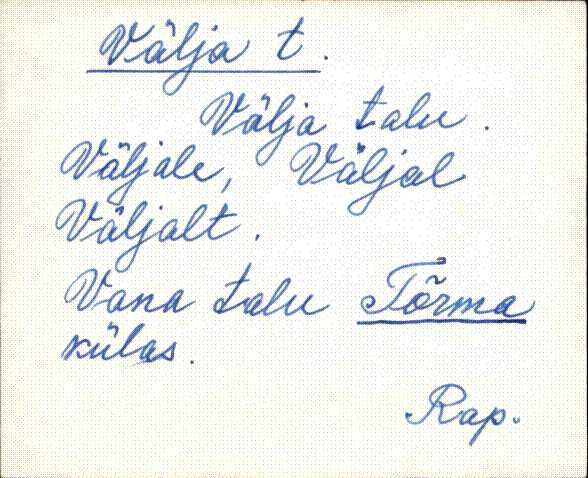 Välja t.
Välja talu.
Väljale, Väljal
Väljalt.
Vana talu Tõrma
külas.
Rap.